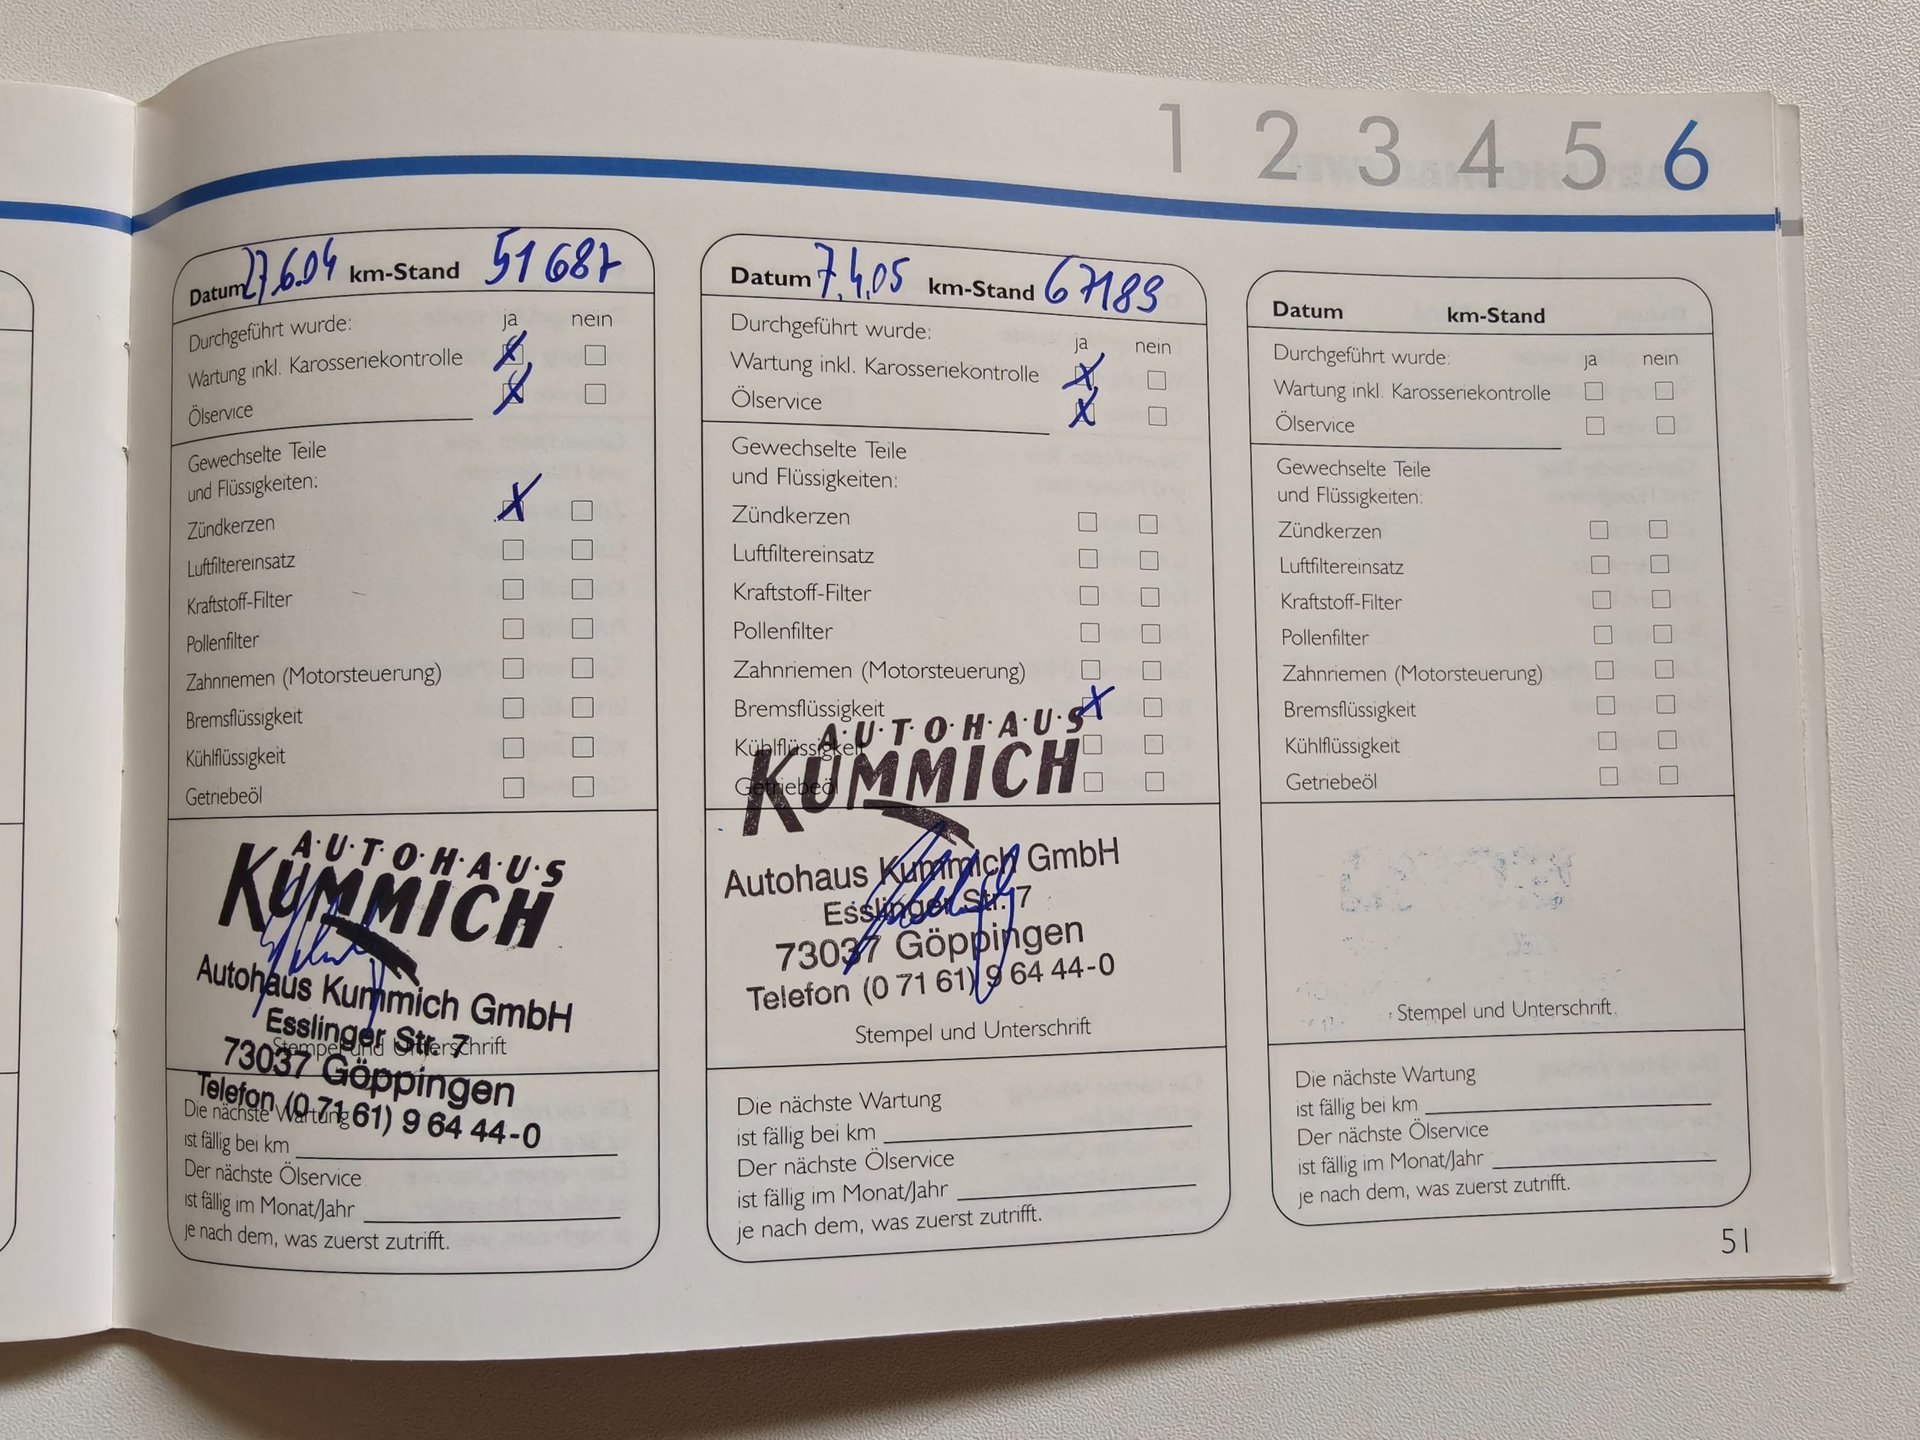 1 2 3 4 5 6
Datum 27.6.04 km-Stand 51687
Durchgeführt wurde: ja nein
Wartung inkl. Karosseriekontrolle
Ölservice
Gewechselte Teile
und Flüssigkeiten:
Zündkerzen
Luftfiltereinsatz
Kraftstoff-Filter
Pollenfilter
Zahnriemen (Motorsteuerung)
Bremsflüssigkeit
Kühlflüssigkeit
Getriebeöl
A·U·T·O·H·A·U·S
KUMMICH
Autohaus Kummich GmbH
Esslinger Str. 7
Stempel und Unterschrift
73037 Göppingen
Telefon (0 71 61) 9 64 44-0
Die nächste Wartung
ist fällig bei km
Der nächste Ölservice
ist fällig im Monat/Jahr
je nach dem, was zuerst zutrifft.
Datum 7.4.05 km-Stand 67189
Durchgeführt wurde: ja nein
Wartung inkl. Karosseriekontrolle
Ölservice
Gewechselte Teile
und Flüssigkeiten:
Zündkerzen
Luftfiltereinsatz
Kraftstoff-Filter
Pollenfilter
Zahnriemen (Motorsteuerung)
Bremsflüssigkeit
A·U·T·O·H·A·U·S
Kühlflüssigkeit
KUMMICH
Getriebeöl
Autohaus Kummich GmbH
Esslinger Str. 7
73037 Göppingen
Telefon (0 71 61) 9 64 44-0
Stempel und Unterschrift
Die nächste Wartung
ist fällig bei km
Der nächste Ölservice
ist fällig im Monat/Jahr
je nach dem, was zuerst zutrifft.
Datum km-Stand
Durchgeführt wurde: ja nein
Wartung inkl. Karosseriekontrolle
Ölservice
Gewechselte Teile
und Flüssigkeiten:
Zündkerzen
Luftfiltereinsatz
Kraftstoff-Filter
Pollenfilter
Zahnriemen (Motorsteuerung)
Bremsflüssigkeit
Kühlflüssigkeit
Getriebeöl
Stempel und Unterschrift
Die nächste Wartung
ist fällig bei km
Der nächste Ölservice
ist fällig im Monat/Jahr
je nach dem, was zuerst zutrifft.
51